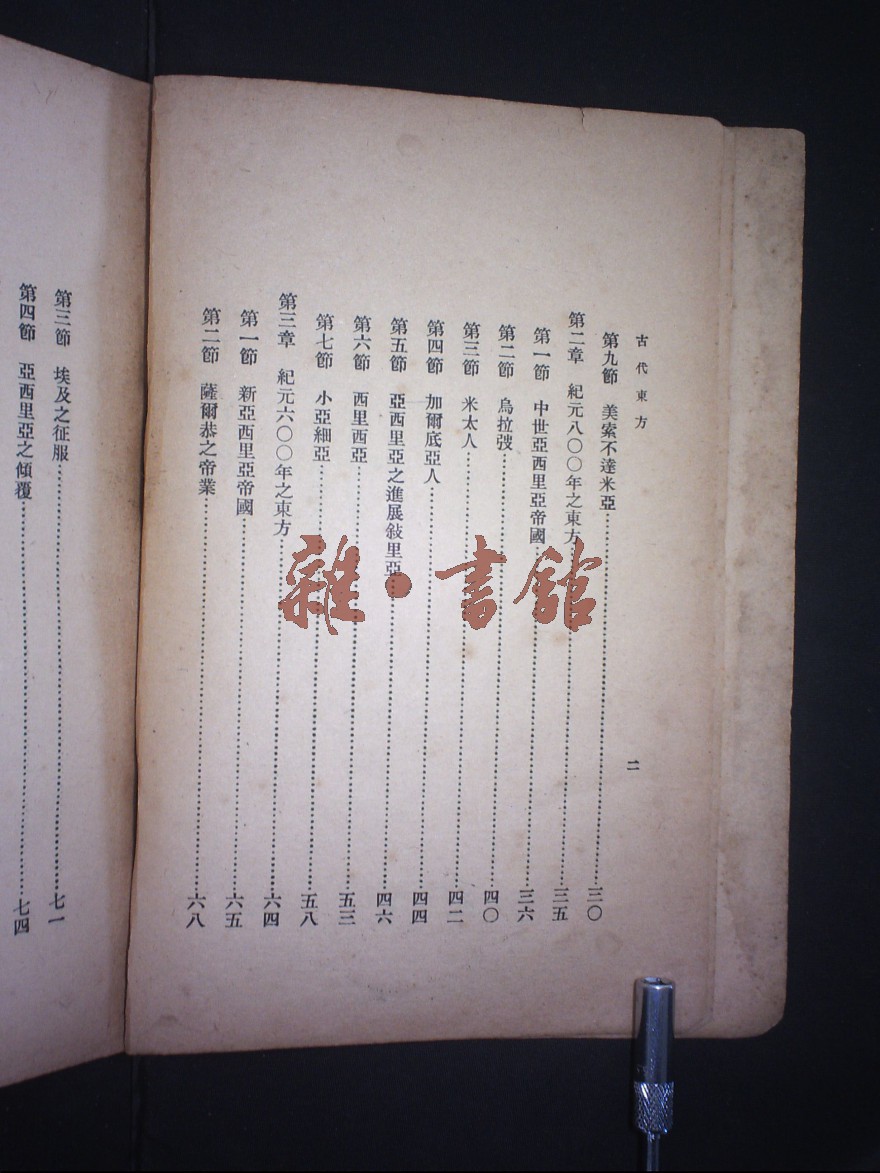 古代東方
二
第九節 美索不達米亞……三〇
第二章 紀元八〇〇年之東方……三五
第一節 中世亞西里亞帝國……三六
第二節 烏拉弢……四〇
第三節 米太人……四二
第四節 加爾底亞人……四四
第五節 亞西里亞之進展敍里亞……四六
第六節 西里西亞……五三
第七節 小亞細亞……五八
第三章 紀元六〇〇年之東方……六四
第一節 新亞西里亞帝國……六五
第二節 薩爾恭之帝業……六八
第三節 埃及之征服……七一
第四節 亞西里亞之傾覆……七四
雜·書館